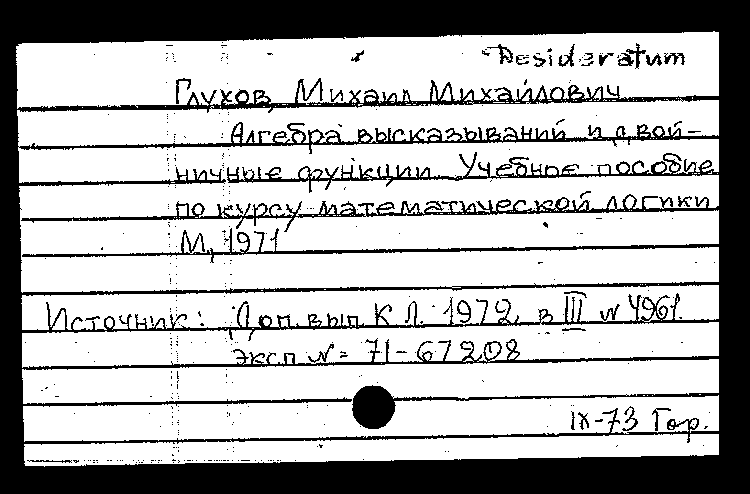 Desideratum
Глухов, Михаил Михайлович
Алгебра высказываний и двой-
ничные функции. Учебное пособие
по курсу математической логики.
М., 1971
Источник: Доп. вып. КЛ. 1972, в III № 4961.
Эксп № = 71-67208
IX-73 Гор.